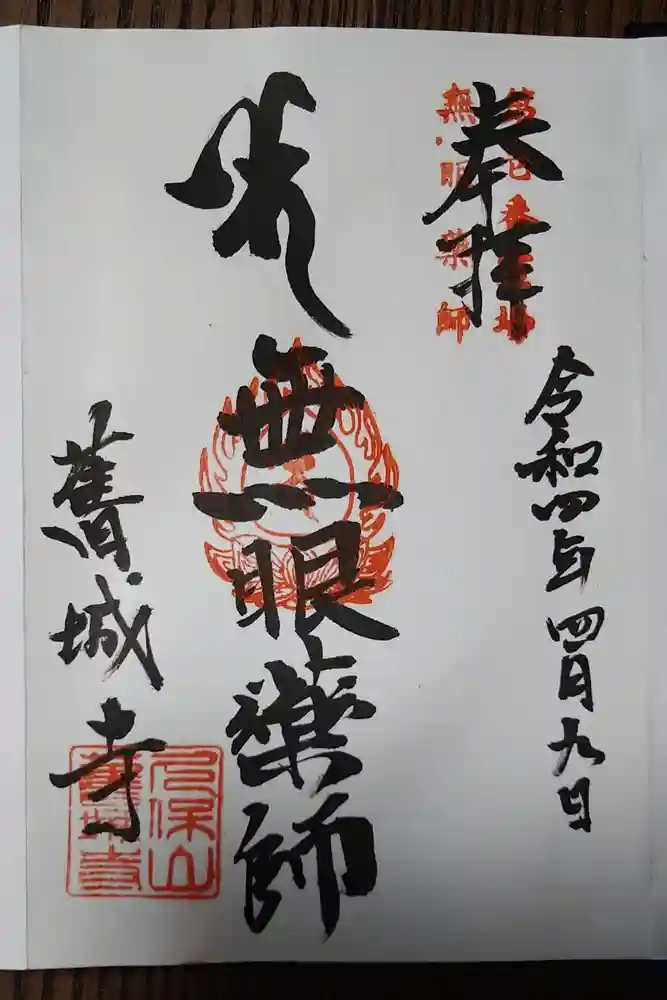 奉拝
無眼薬師
令和四年四月九日
無眼薬師
舊城寺
久保山
舊城寺